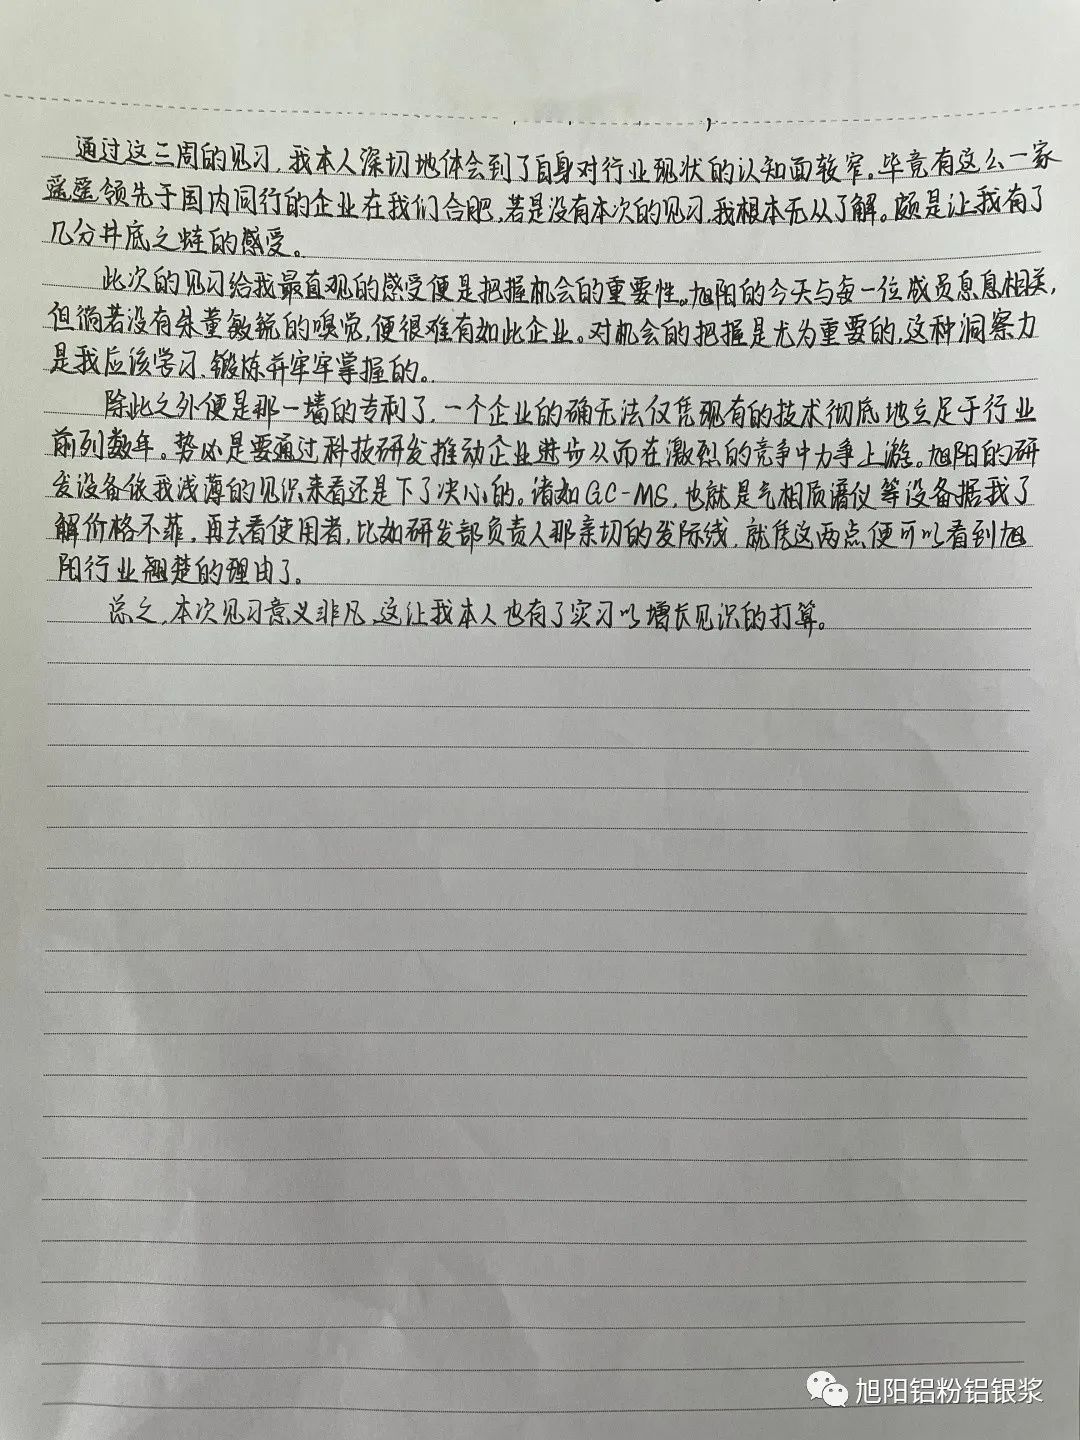 通过这三周的见习，我本人深切地体会到了自身对行业现状的认知面较窄。毕竟有这么一家
遥遥领先于国内同行的企业在我们合肥，若是没有本次的见习，我根本无从了解。颇是让我有了
几分井底之蛙的感受。
此次的见习给我最直观的感受便是把握机会的重要性。旭阳的今天与每一位成员息息相关，
但倘若没有朱董敏锐的嗅觉，便很难有如此企业。对机会的把握是尤为重要的，这种洞察力
是我应该学习、锻炼并牢牢掌握的。
除此之外便是那一墙的专利了，一个企业的确无法仅凭现有的技术彻底地立足于行业
前列数年。势必是要通过科技研发推动企业进步从而在激烈的竞争中力争上游。旭阳的研
发设备依我浅薄的见识来看还是下了决心的。诸如GC-MS，也就是气相质谱仪等设备据我了
解价格不菲，再去看使用者，比如研发部负责人那亲切的发际线，就凭这两点便可以看到旭
阳行业翘楚的理由了。
总之，本次见习意义非凡，这让我本人也有了实习以增长见识的打算。
旭阳铝粉铝银浆